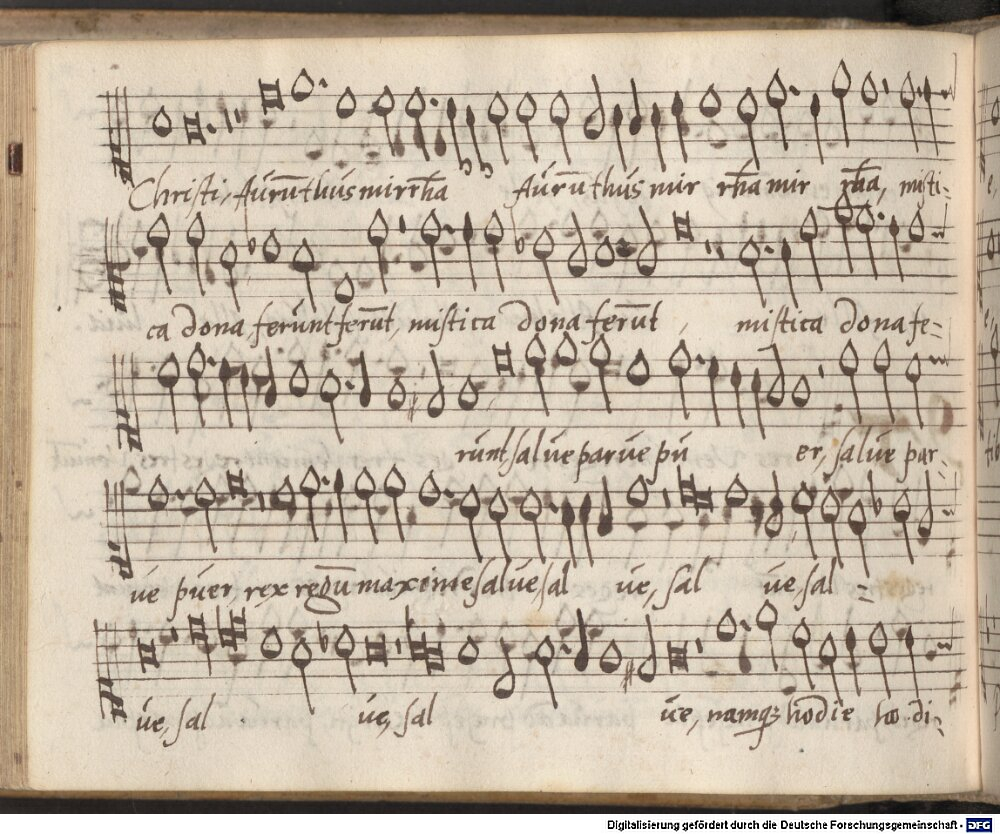 Christi, Aurũ thus mirrha Aurũ thus mir rha mir rha, misti-
ca dona, ferunt ferũt, mistica dona ferũt, mistica dona fe-
runt, salue parue pu er, salue par-
ue puer, rex regũ maxime salue, sal ue, sal ue, sal
ue, sal ue, sal ue, namq; hodie ho di-
Digitalisierung gefördert durch die Deutsche Forschungsgemeinschaft - DFG